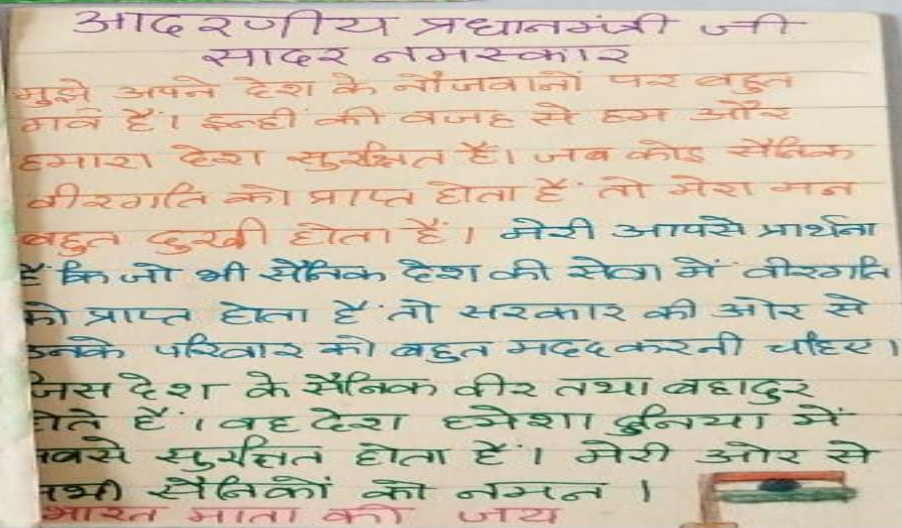 आदरणीय प्रधानमंत्री जी
सादर नमस्कार
मुझे अपने देश के नौजवानों पर बहुत
गर्व हैं। इन्हीं की वजह से हम और
हमारा देश सुरक्षित है। जब कोइ सैनिक
वीरगति को प्राप्त होता हैं तो मेरा मन
बहुत दुखी होता हैं। मेरी आपसे प्रार्थना
हैं कि जो भी सैनिक देश की सेवा में वीरगति
को प्राप्त होता हैं तो सरकार की ओर से
उनके परिवार को बहुत मदद करनी चाहिए।
जिस देश के सैनिक वीर तथा बहादुर
होते हैं। वह देश हमेशा दुनिया में
सबसे सुरक्षित होता हैं। मेरी ओर से
सभी सैनिकों को नमन।
भारत माता की जय